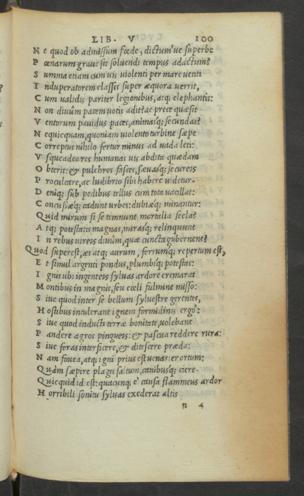 LIB. V 100
Ne quod ob admissum foede, dictum'ue superbe
Poenarum graue sit soluendi tempus adactum?
Summa etiam cum uis uiolenti per mare uenti
Induperatorem classis super aequora uerrit,
Cum ualidis pariter legionibus, atq; elephantis:
Non diuûm pacem uotis adit? ac prece quaesit
Ventorum pauidus paces, animasq; secundas?
Nequicquam, quoniam uiolento turbine saepe
Correptus nihilo fertur minus ad uada leti:
Vsqueadeo res humanas uis abdita quaedam
Obterit: & pulchros fasceis, saeuasq; secureis
Proculcare, ac ludibrio sibi habere uidetur.
Deniq; sub pedibus tellus cum tota uacillat:
Concussaeq; cadunt urbes: dubiaeq; minantur:
Quid mirum si se temnunt mortalia secla?
Atq; potestatis magnas, mirasq; relinquunt
In rebus uireis diuûm, quae cuncta gubernent?
Quod superest, aes atq; aurum, ferrumq; repertum est,
Et simul argenti pondus, plumbiq; potestas:
Ignis ubi ingenteis syluas ardore cremarat
Montibus in magnis, seu coeli fulmine misso:
Siue quod inter se bellum syluestre gerentes,
Hostibus intulerant ignem formidinis ergo:
Siue quod inducti terrae bonitate, uolebant
Pandere agros pingueis: & pascua reddere rura:
Siue feras interficere, & ditescere praeda:
Nam fouea, atq; igni prius est uenarier ortum:
Quàm saepire plagis saltum, canibusq; ciere.
Quicquid id est: quacunq; è causa flammeus ardor
Horribili sonitu syluas exederat altis
n 4